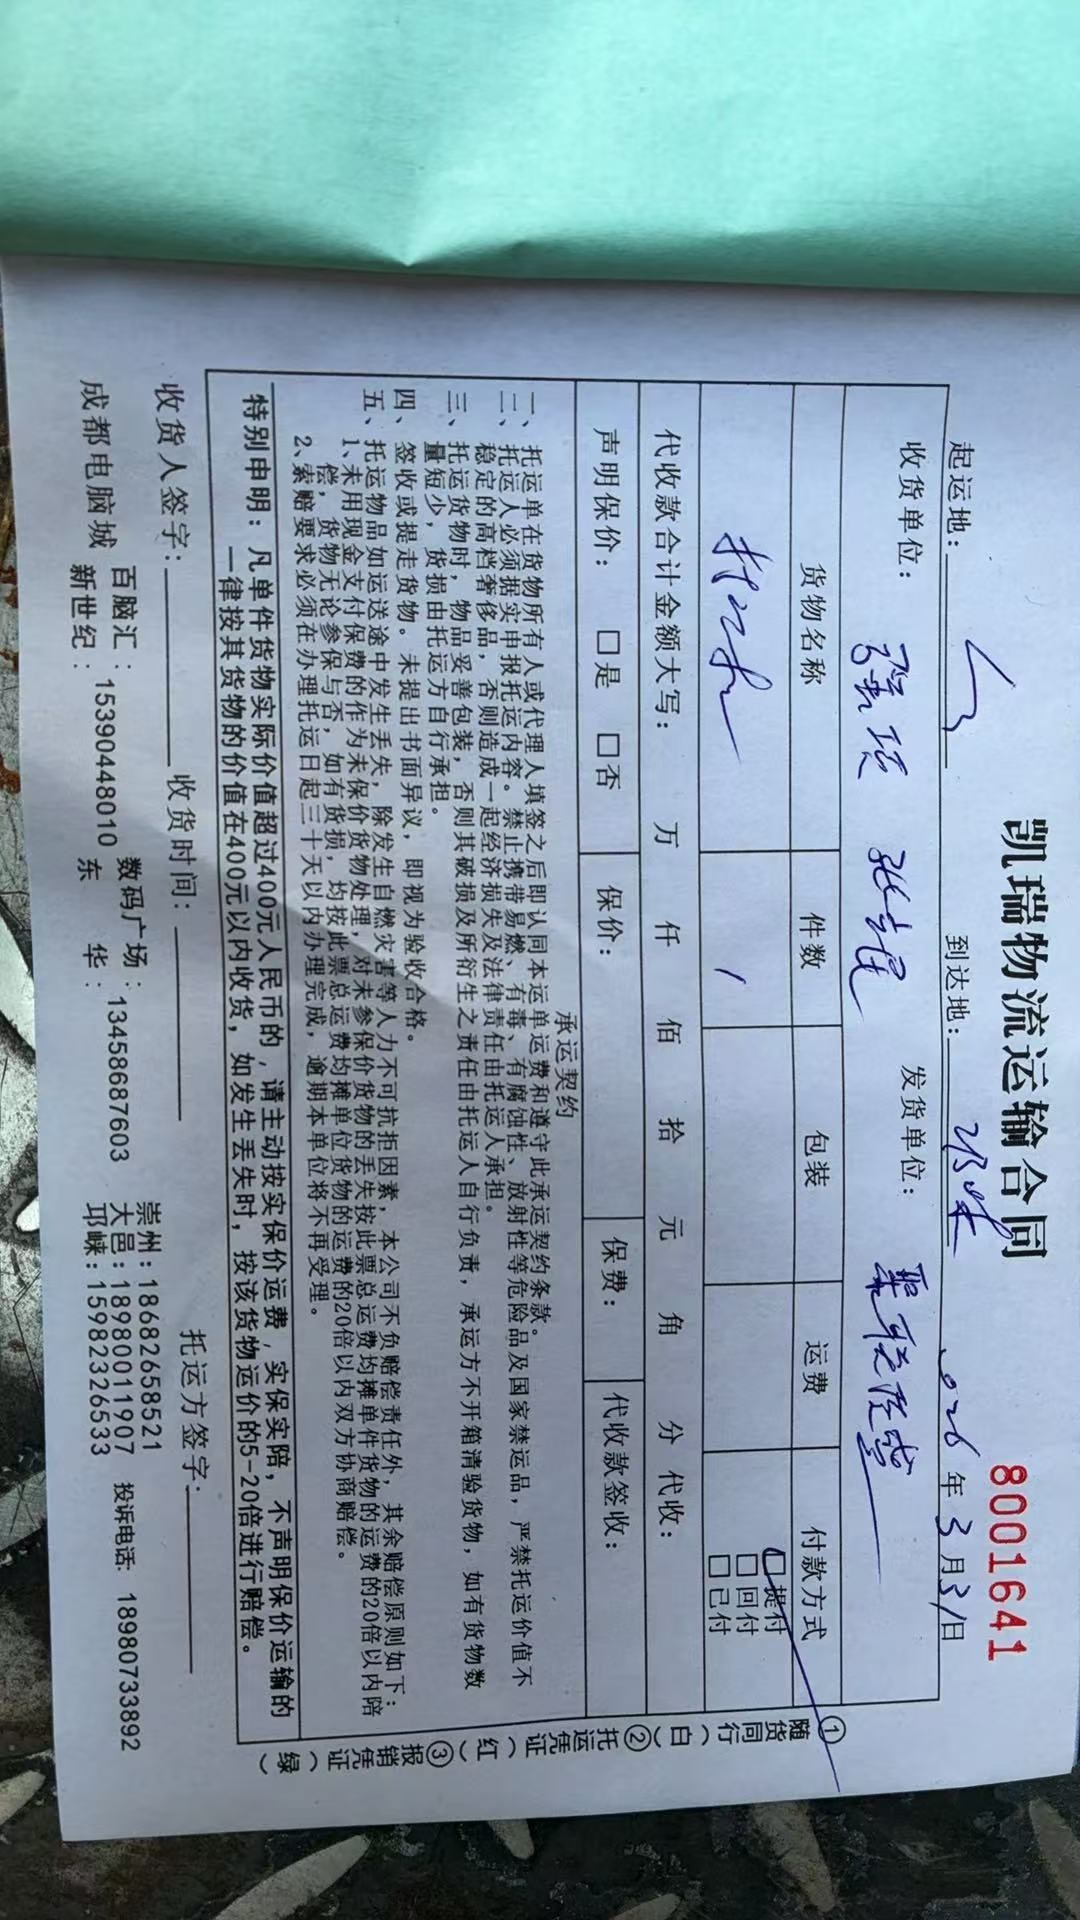 凯瑞物流运输合同
8001641
起运地： 到达地： 026年3月31日
收货单位： 发货单位：
货物名称 件数 包装 运费 付款方式
打印机 1 □提付
□回付
□已付
代收款合计金额大写： 万 仟 佰 拾 元 角 分 代收：
声明保价： □是 □否 保价： 保费： 代收款签收：
承运契约
一、托运单在货物所有人或代理人填签之后即认同本运单运费和遵守此承运契约条款。
二、托运人必须据实申报托运内容。禁止携带易燃、有毒、有腐蚀性、放射性等危险品及国家禁运品，严禁托运价值不
稳定的高档奢侈品，否则造成一起经济损失及法律责任由托运人承担。
三、托运货物时，物品妥善包装，否则其破损及所衍生之责任由托运人自行负责，承运方不开箱清验货物，如有货物数
量短少，货损由托运方自行承担。
四、签收或提走货物。未提出书面异议，即视为验收合格。
五、托运物品如运送途中发生丢失，除发生自燃灾害等人力不可抗拒因素，本公司不负赔偿责任外，其余赔偿原则如下：
1、未用现金支付保费的作为未保价货物处理，对未参保价货物的丢失按此票总运费均摊单件货物的运费的20倍以内陪
偿，货物无论参保与否，如有货损，均按此票总运费均摊单位货物的运费的20倍以内双方协商赔偿。
2、索赔要求必须在办理托运日起三十天以内办理完成，逾期本单位将不再受理。
特别申明：凡单件货物实际价值超过400元人民币的，请主动按实保价运费，实保实陪，不声明保价运输的
一律按其货物的价值在400元以内收货，如发生丢失时，按该货物运价的5-20倍进行赔偿。
收货人签字： 收货时间： 托运方签字：
成都电脑城 百脑汇：15390448010 数码广场：13458687603 崇州：18682658521
新世纪： 东 华： 大邑：18980011907 投诉电话：18980733892
邛崃：15982326533
①随货同行（白）②托运凭证（红）③报销凭证（绿）